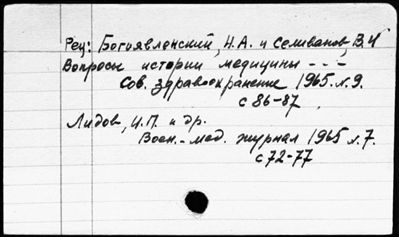 Рец: Богоявленский, Н.А. и Селиванов, В.И
Вопросы истории медицины - - -
Сов. здравоохранение 1965 №.9.
с 86-87
Лидов, И.П. и др.
Воен.-мед. журнал 1965 №.7.
с 72-77